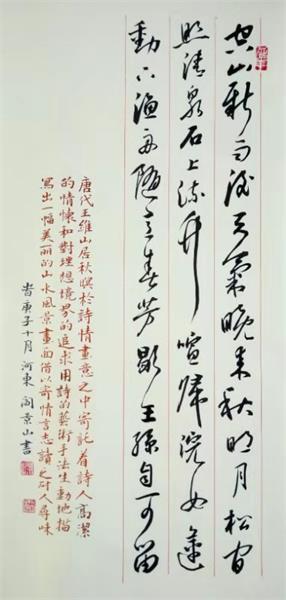 空山新雨後天氣晚來秋明月松間
照清泉石上流竹喧歸浣女蓮
動下漁舟隨意春芳歇王孫自可留
唐代王維山居秋暝於詩情畫意之中寄託着詩人高潔
的情懷和對理想境界的追求用詩的藝術手法生動地描
寫出一幅美丽的山水風景畫面借以寄情言志讀之耐人尋味
旹庚子十月河東阎景山書